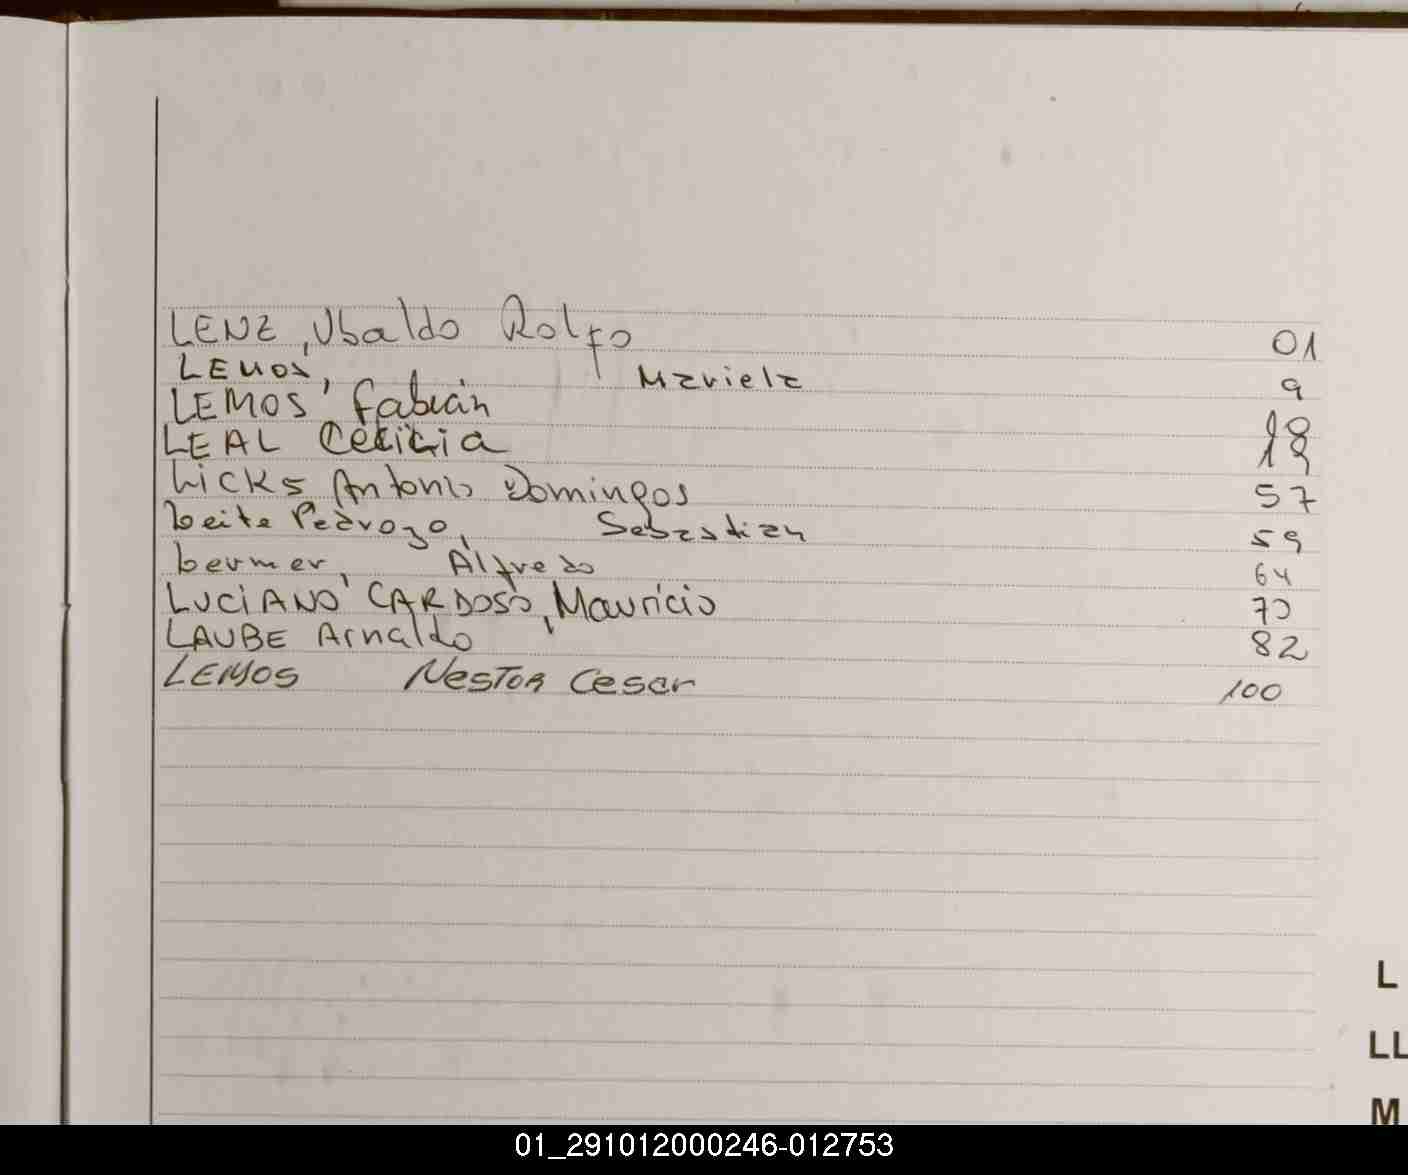 LENZ, Ubaldo Rolfo 01
LEMOS, Mariela 9
LEMOS, Fabián 18
LEAL Cecilia
Licks Antonio Domingos 57
Leite Pedrozo, Sebastian 59
Lermer, Alfredo 64
LUCIANO CARDOSO, Mauricio 70
LAUBE Arnaldo 82
LEMOS NESTOR Cesar 100
L
LL
M
01_291012000246-012753